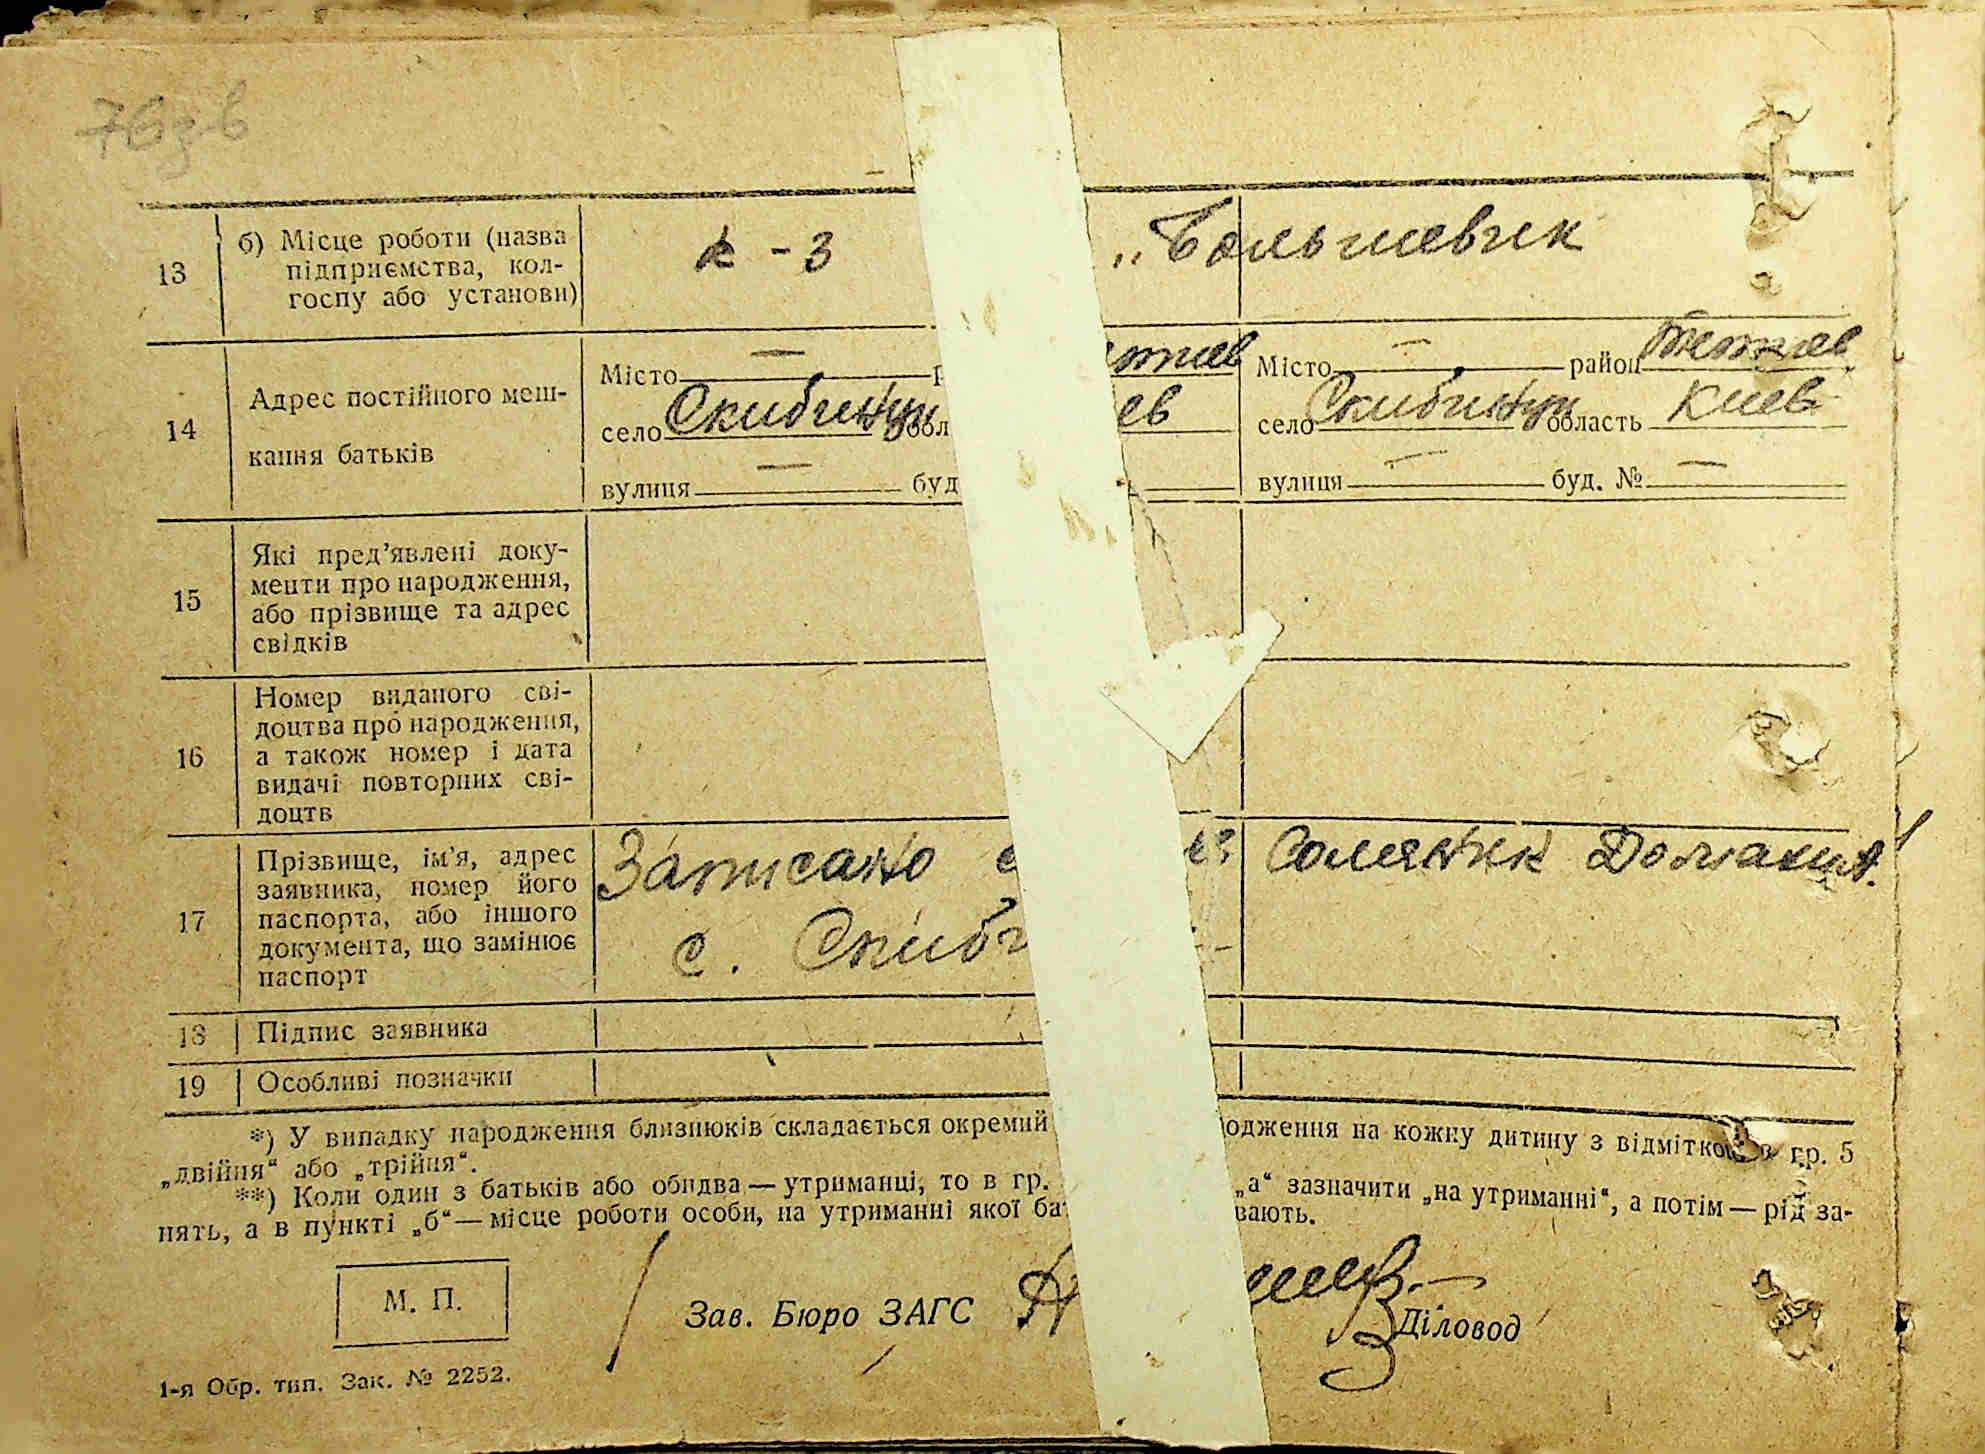 76зв
13 б) Місце роботи (назва підприємства, кол-госпу або установи) к-з „Большевик
14 Адрес постійного меш-
кання батьків
Місто — тиев Місто — район Тетиев
село Скибинци обл ев село Скибинци область Киев
вулиця — буд вулиця — буд. № —
15 Які пред’явлені доку-
менти про народження,
або прізвище та адрес
свідків
16 Номер виданого сві-
доцтва про народження,
а також номер і дата
видачі повторних сві-
доцтв
17 Прізвище, ім’я, адрес
заявника, номер його
паспорта, або іншого
документа, що замінює
паспорт
Записано Соляник
с. Скиб
18 Підпис заявника
19 Особливі позначки
*) У випадку народження близнюків складається окремий одження на кожну дитину з відміткою в гр. 5
„двійня“ або „трійня“.
**) Коли один з батьків або обидва — утриманці, то в гр. „а“ зазначити „на утриманні“, а потім — рід за-
нять, а в пункті „б“ — місце роботи особи, на утриманні якої ба вають.
М. П.
Зав. Бюро ЗАГС Діловод
1-я Обр. тип. Зак. № 2252.